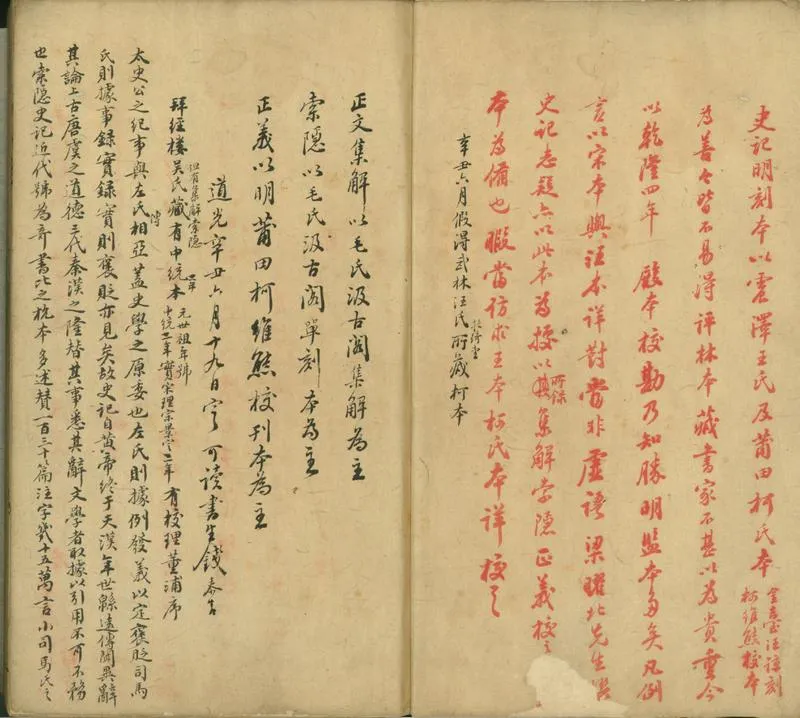 史記明刻本以震澤王氏及莆田柯氏本
金臺汪諒刻
柯維熊校本
為善々皆不易得評林本藏書家不甚以為貴重今
以乾隆四年 殿本校勘乃知勝明監本多矣凡例
言以宋本與汪本詳對當非虛語梁曜北先生
史記志疑亦以此本為據以所錄集解索隱正義校之
本為備也暇當訪求王本柯氏本詳校之
辛丑六月假得武林汪氏振綺堂所藏柯本
正文集解以毛氏汲古閣集解為主
索隱以毛氏汲古閣單刻本為主
正義以明莆田柯維熊校刊本為主
道光辛丑六月十九日定可讀書生錢泰吉
拜經樓吳氏藏有中統本
但有集解索隱
二年
元世祖年號
中統二年實宋理宗景定二年
有校理董浦序
太史公之紀事與左氏相亞蓋史學之原委也左氏則據例發義以定襃貶司馬
氏則據事錄實錄實則襃貶亦見矣故史記自黃帝終于天漢年世緜遠傳聞異辭
其論上古唐虞之道德三代秦漢之隆替其事悉其辭文學者取據以引用不可不務
也索隱史記近代號為奇書比之杭本多述贊一百三十篇注字幾十五萬言小司馬氏之